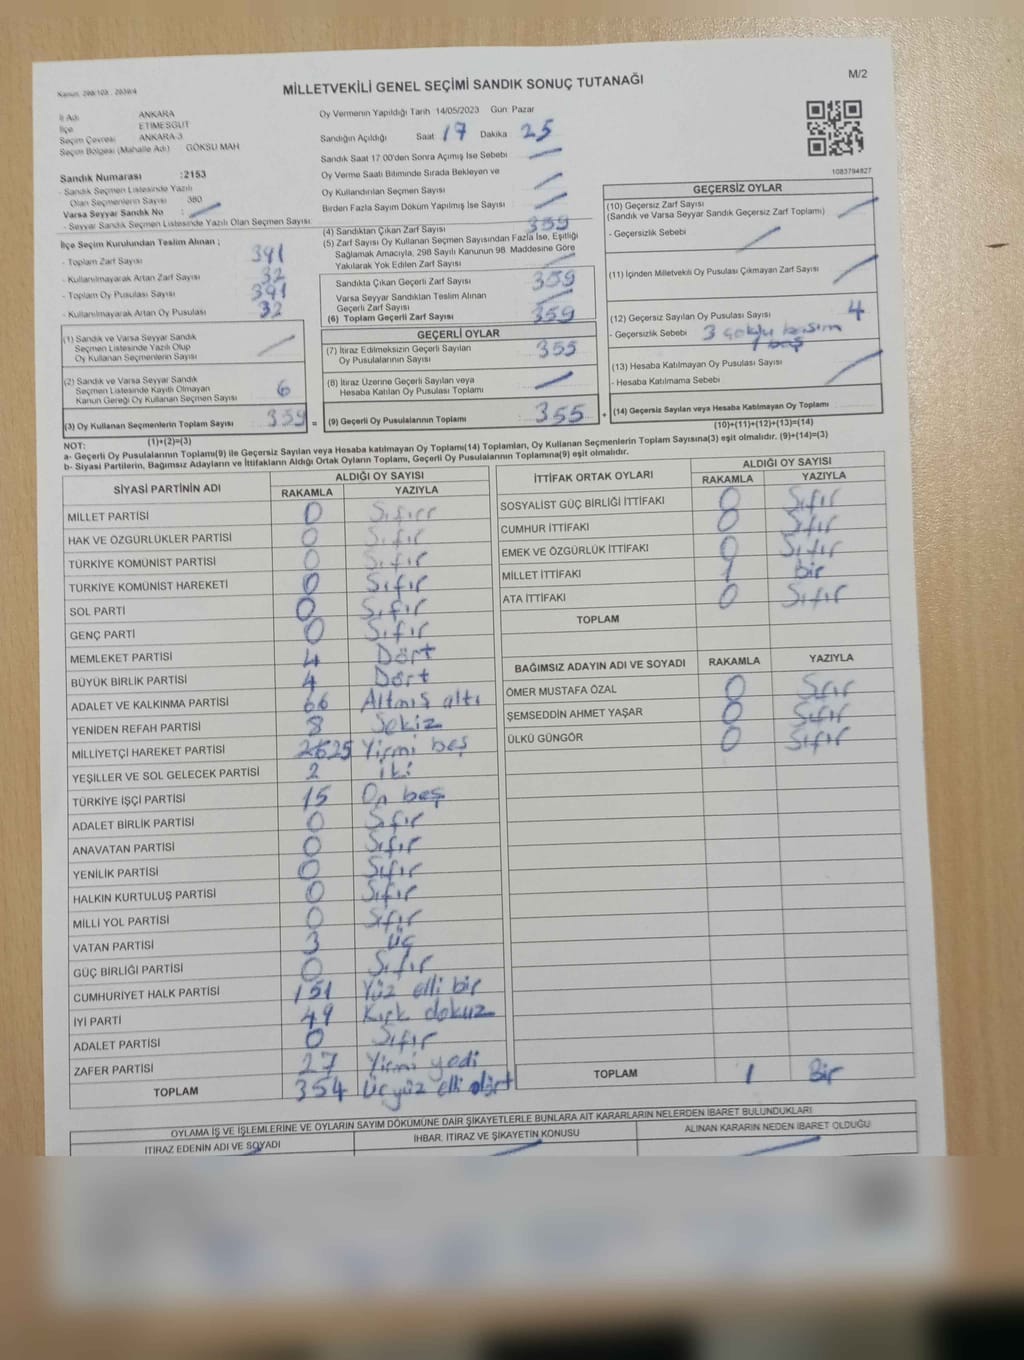 M/2
MİLLETVEKİLİ GENEL SEÇİMİ SANDIK SONUÇ TUTANAĞI
İl Adı ANKARA
İlçe ETİMESGUT
Seçim Çevresi ANKARA-3
Seçim Bölgesi (Mahalle Adı) GÖKSU MAH
Sandık Numarası :2153
- Sandık Seçmen Listesinde Yazılı
Olan Seçmenlerin Sayısı 380
Varsa Seyyar Sandık No :
- Seyyar Sandık Seçmen Listesinde Yazılı Olan Seçmen Sayısı:
İlçe Seçim Kurulundan Teslim Alınan ;
- Toplam Zarf Sayısı 391
- Kullanılmayarak Artan Zarf Sayısı 32
- Toplam Oy Pusulası Sayısı 391
- Kullanılmayarak Artan Oy Pusulası 32
(1) Sandık ve Varsa Seyyar Sandık
Seçmen Listesinde Yazılı Olup
Oy Kullanan Seçmenlerin Sayısı
(2) Sandık ve Varsa Seyyar Sandık
Seçmen Listesinde Kayıtlı Olmayan
Kanun Gereği Oy Kullanan Seçmen Sayısı 6
(3) Oy Kullanan Seçmenlerin Toplam Sayısı 359 =
(1)+(2)=(3)
Oy Vermenin Yapıldığı Tarih 14/05/2023 Gün: Pazar
Sandığın Açıldığı Saat 17 Dakika 25
Sandık Saat 17:00'den Sonra Açımış İse Sebebi
Oy Verme Saati Bitiminde Sırada Bekleyen ve
Oy Kullandırılan Seçmen Sayısı
Birden Fazla Sayım Döküm Yapılmış İse Sayısı
(4) Sandıktan Çıkan Zarf Sayısı 359
(5) Zarf Sayısı Oy Kullanan Seçmen Sayısından Fazla İse, Eşitliği
Sağlamak Amacıyla, 298 Sayılı Kanunun 98. Maddesine Göre
Yakılarak Yok Edilen Zarf Sayısı
Sandıkta Çıkan Geçerli Zarf Sayısı 359
Varsa Seyyar Sandıktan Teslim Alınan
Geçerli Zarf Sayısı
(6) Toplam Geçerli Zarf Sayısı 359
GEÇERLİ OYLAR
(7) İtiraz Edilmeksizin Geçerli Sayılan
Oy Pusulalarının Sayısı 355
(8) İtiraz Üzerine Geçerli Sayılan veya
Hesaba Katılan Oy Pusulası Toplamı
(9) Geçerli Oy Pusulalarının Toplamı 355 +
1083794827
GEÇERSİZ OYLAR
(10) Geçersiz Zarf Sayısı
(Sandık ve Varsa Seyyar Sandık Geçersiz Zarf Toplamı)
- Geçersizlik Sebebi
(11) İçinden Milletvekili Oy Pusulası Çıkmayan Zarf Sayısı
(12) Geçersiz Sayılan Oy Pusulası Sayısı 4
- Geçersizlik Sebebi 3 çoklu basım
1 boş
(13) Hesaba Katılmayan Oy Pusulası Sayısı
- Hesaba Katılmama Sebebi
(14) Geçersiz Sayılan veya Hesaba Katılmayan Oy Toplamı
(10)+(11)+(12)+(13)=(14)
NOT:
a- Geçerli Oy Pusulalarının Toplamı(9) ile Geçersiz Sayılan veya Hesaba katılmayan Oy Toplamı(14) Toplamları, Oy Kullanan Seçmenlerin Toplam Sayısına(3) eşit olmalıdır. (9)+(14)=(3)
b- Siyasi Partilerin, Bağımsız Adayların ve İttifakların Aldığı Ortak Oyların Toplamı, Geçerli Oy Pusulalarının Toplamına(9) eşit olmalıdır.
SİYASİ PARTİNİN ADI ALDIĞI OY SAYISI
RAKAMLA YAZIYLA
MİLLET PARTİSİ 0 Sıfır
HAK VE ÖZGÜRLÜKLER PARTİSİ 0 Sıfır
TÜRKİYE KOMÜNİST PARTİSİ 0 Sıfır
TÜRKİYE KOMÜNİST HAREKETİ 0 Sıfır
SOL PARTİ 0 Sıfır
GENÇ PARTİ 0 Sıfır
MEMLEKET PARTİSİ 4 Dört
BÜYÜK BİRLİK PARTİSİ 4 Dört
ADALET VE KALKINMA PARTİSİ 66 Altmış altı
YENİDEN REFAH PARTİSİ 8 Sekiz
MİLLİYETÇİ HAREKET PARTİSİ 25 Yirmi beş
YEŞİLLER VE SOL GELECEK PARTİSİ 2 İki
TÜRKİYE İŞÇİ PARTİSİ 15 On beş
ADALET BİRLİK PARTİSİ 0 Sıfır
ANAVATAN PARTİSİ 0 Sıfır
YENİLİK PARTİSİ 0 Sıfır
HALKIN KURTULUŞ PARTİSİ 0 Sıfır
MİLLİ YOL PARTİSİ 0 Sıfır
VATAN PARTİSİ 3 Üç
GÜÇ BİRLİĞİ PARTİSİ 0 Sıfır
CUMHURİYET HALK PARTİSİ 151 Yüz elli bir
İYİ PARTİ 49 Kırk dokuz
ADALET PARTİSİ 0 Sıfır
ZAFER PARTİSİ 27 Yirmi yedi
TOPLAM 354 Üçyüz elli dört
İTTİFAK ORTAK OYLARI ALDIĞI OY SAYISI
RAKAMLA YAZIYLA
SOSYALİST GÜÇ BİRLİĞİ İTTİFAKI 0 Sıfır
CUMHUR İTTİFAKI 0 Sıfır
EMEK VE ÖZGÜRLÜK İTTİFAKI 0 Sıfır
MİLLET İTTİFAKI 1 bir
ATA İTTİFAKI 0 Sıfır
TOPLAM
BAĞIMSIZ ADAYIN ADI VE SOYADI RAKAMLA YAZIYLA
ÖMER MUSTAFA ÖZAL 0 Sıfır
ŞEMSEDDİN AHMET YAŞAR 0 Sıfır
ÜLKÜ GÜNGÖR 0 Sıfır
TOPLAM 1 Bir
OYLAMA İŞ VE İŞLEMLERİNE VE OYLARIN SAYIM DÖKÜMÜNE DAİR ŞİKAYETLERLE BUNLARA AİT KARARLARIN NELERDEN İBARET BULUNDUKLARI
İTİRAZ EDENİN ADI VE SOYADI İHBAR, İTİRAZ VE ŞİKAYETİN KONUSU ALINAN KARARIN NEDEN İBARET OLDUĞU